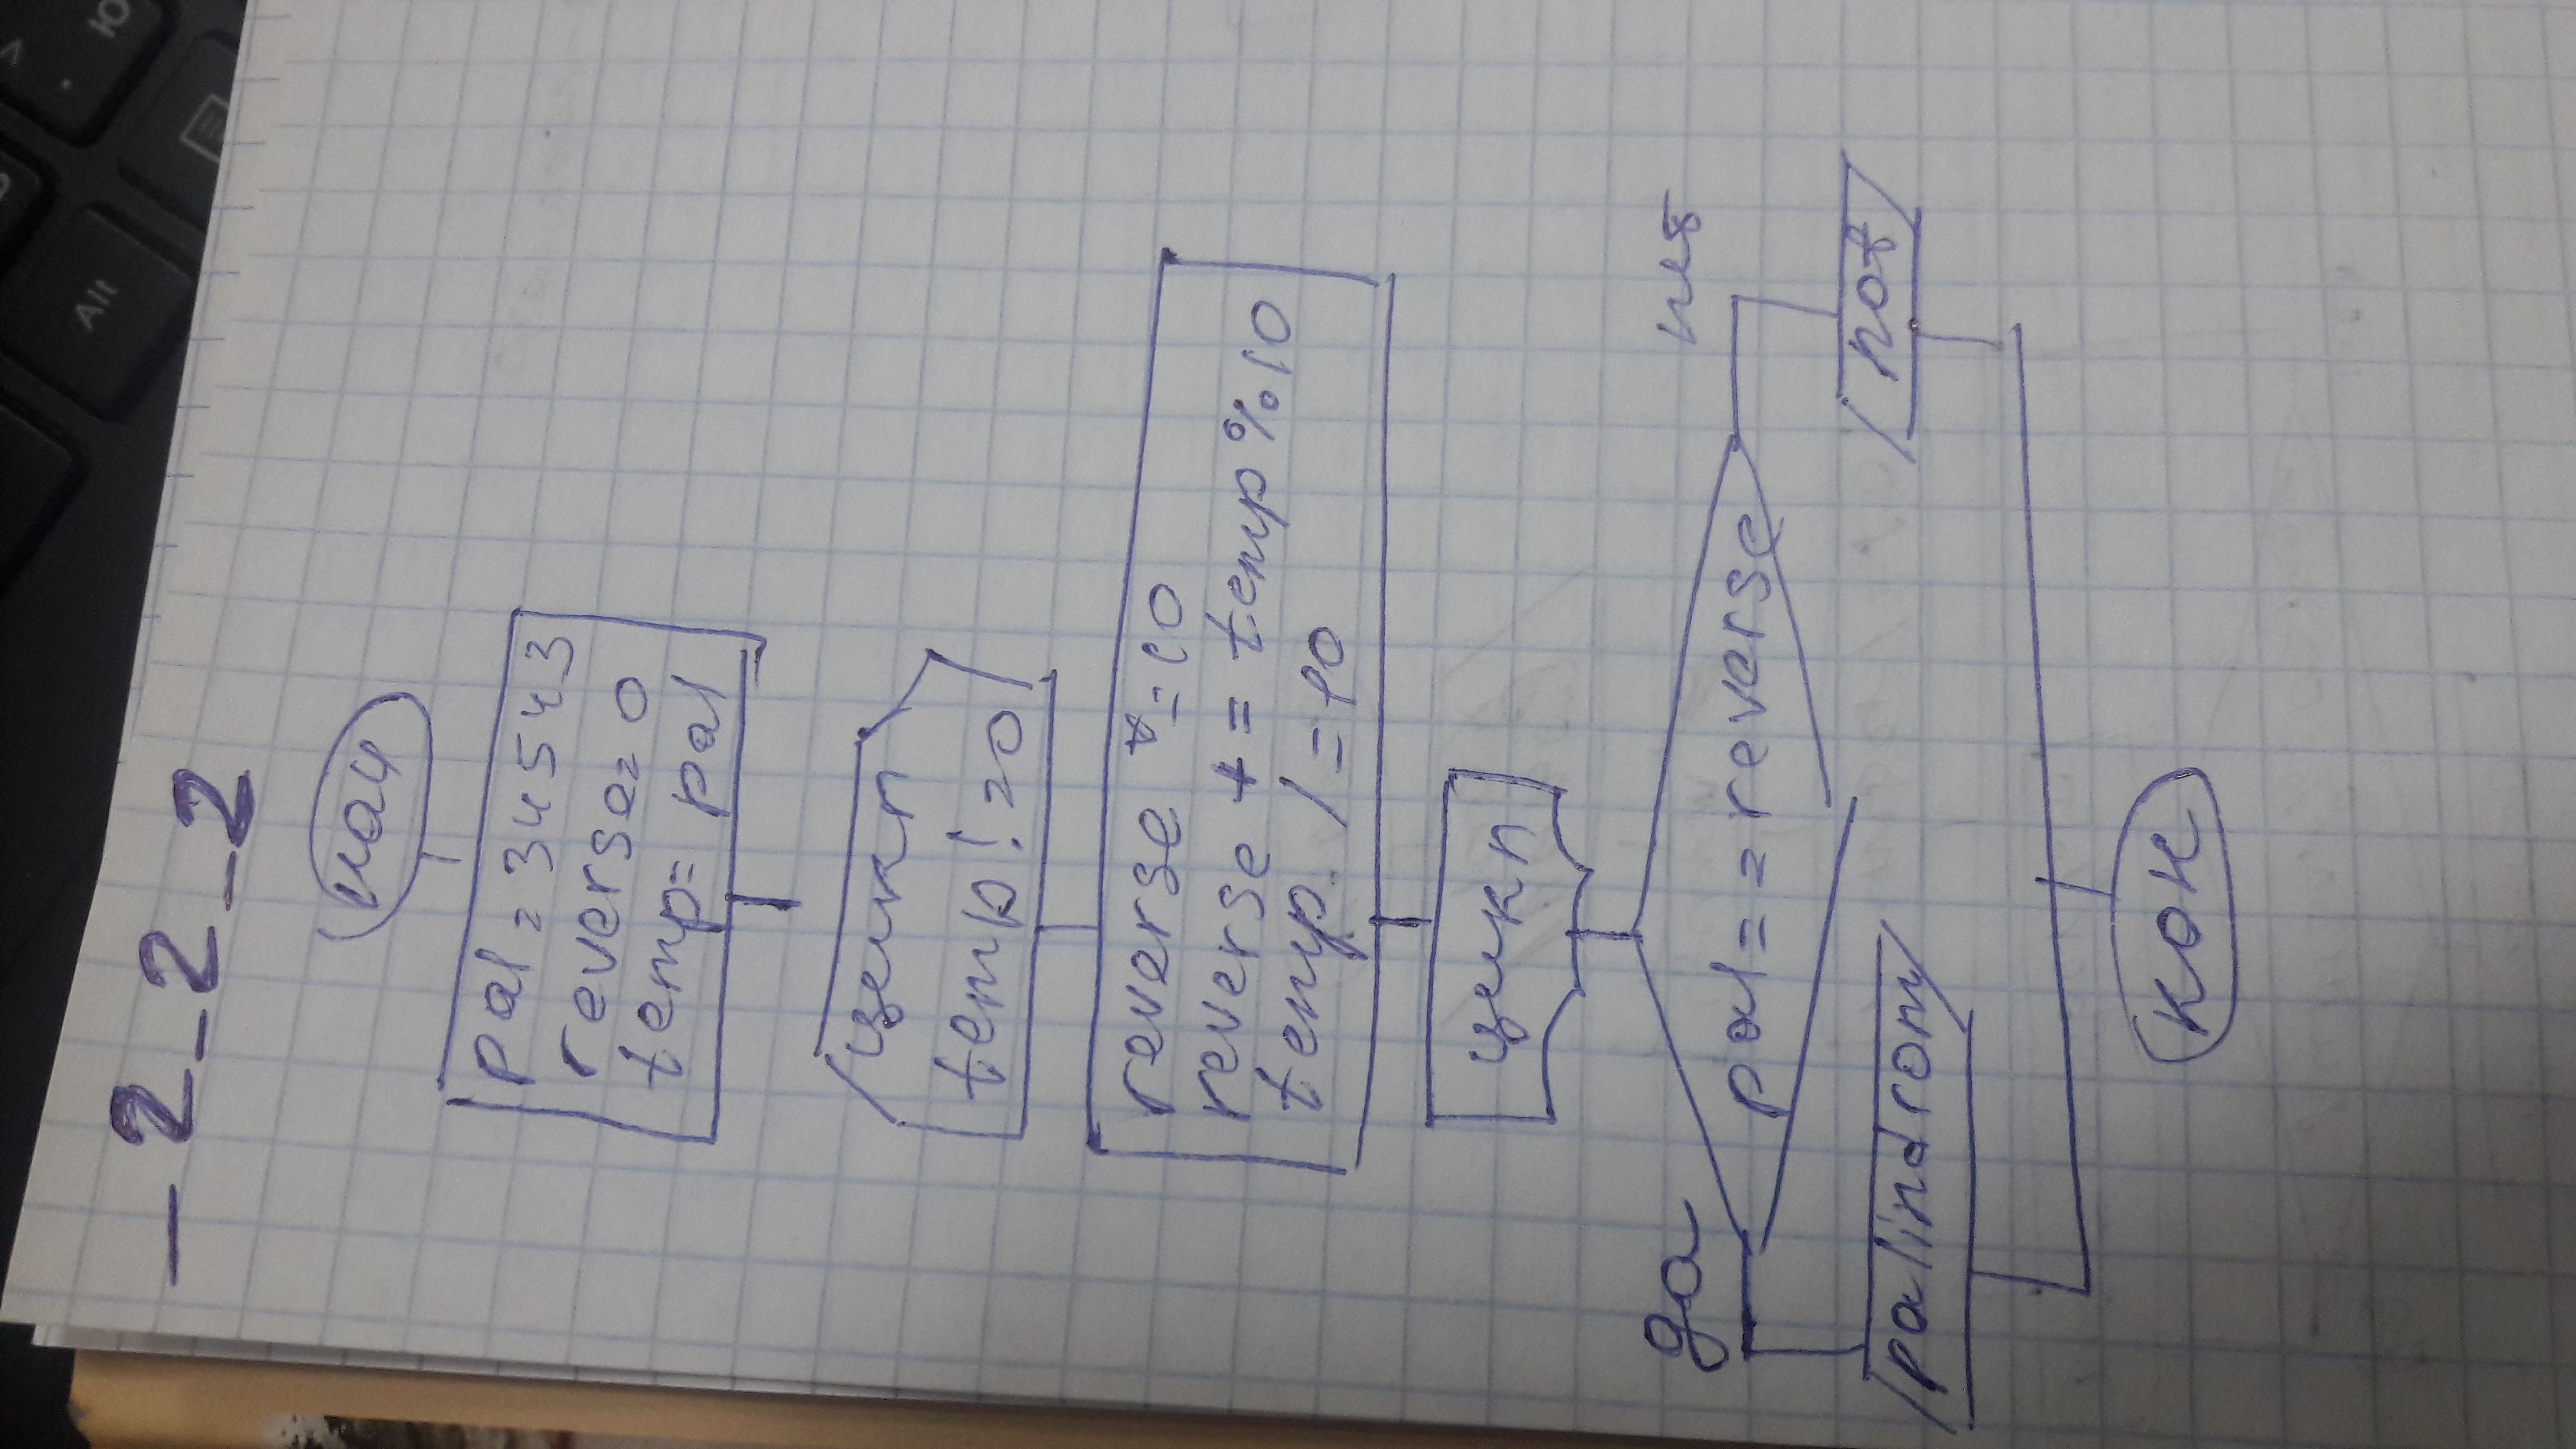 _2_2_2
нач
pal = 34543
reverse = 0
temp = pal
цикл
temp != 0
reverse *= 10
reverse += temp % 10
temp /= 10
цикл
да
нет
pal == reverse
palindrom
not
кон
Alt
Ю